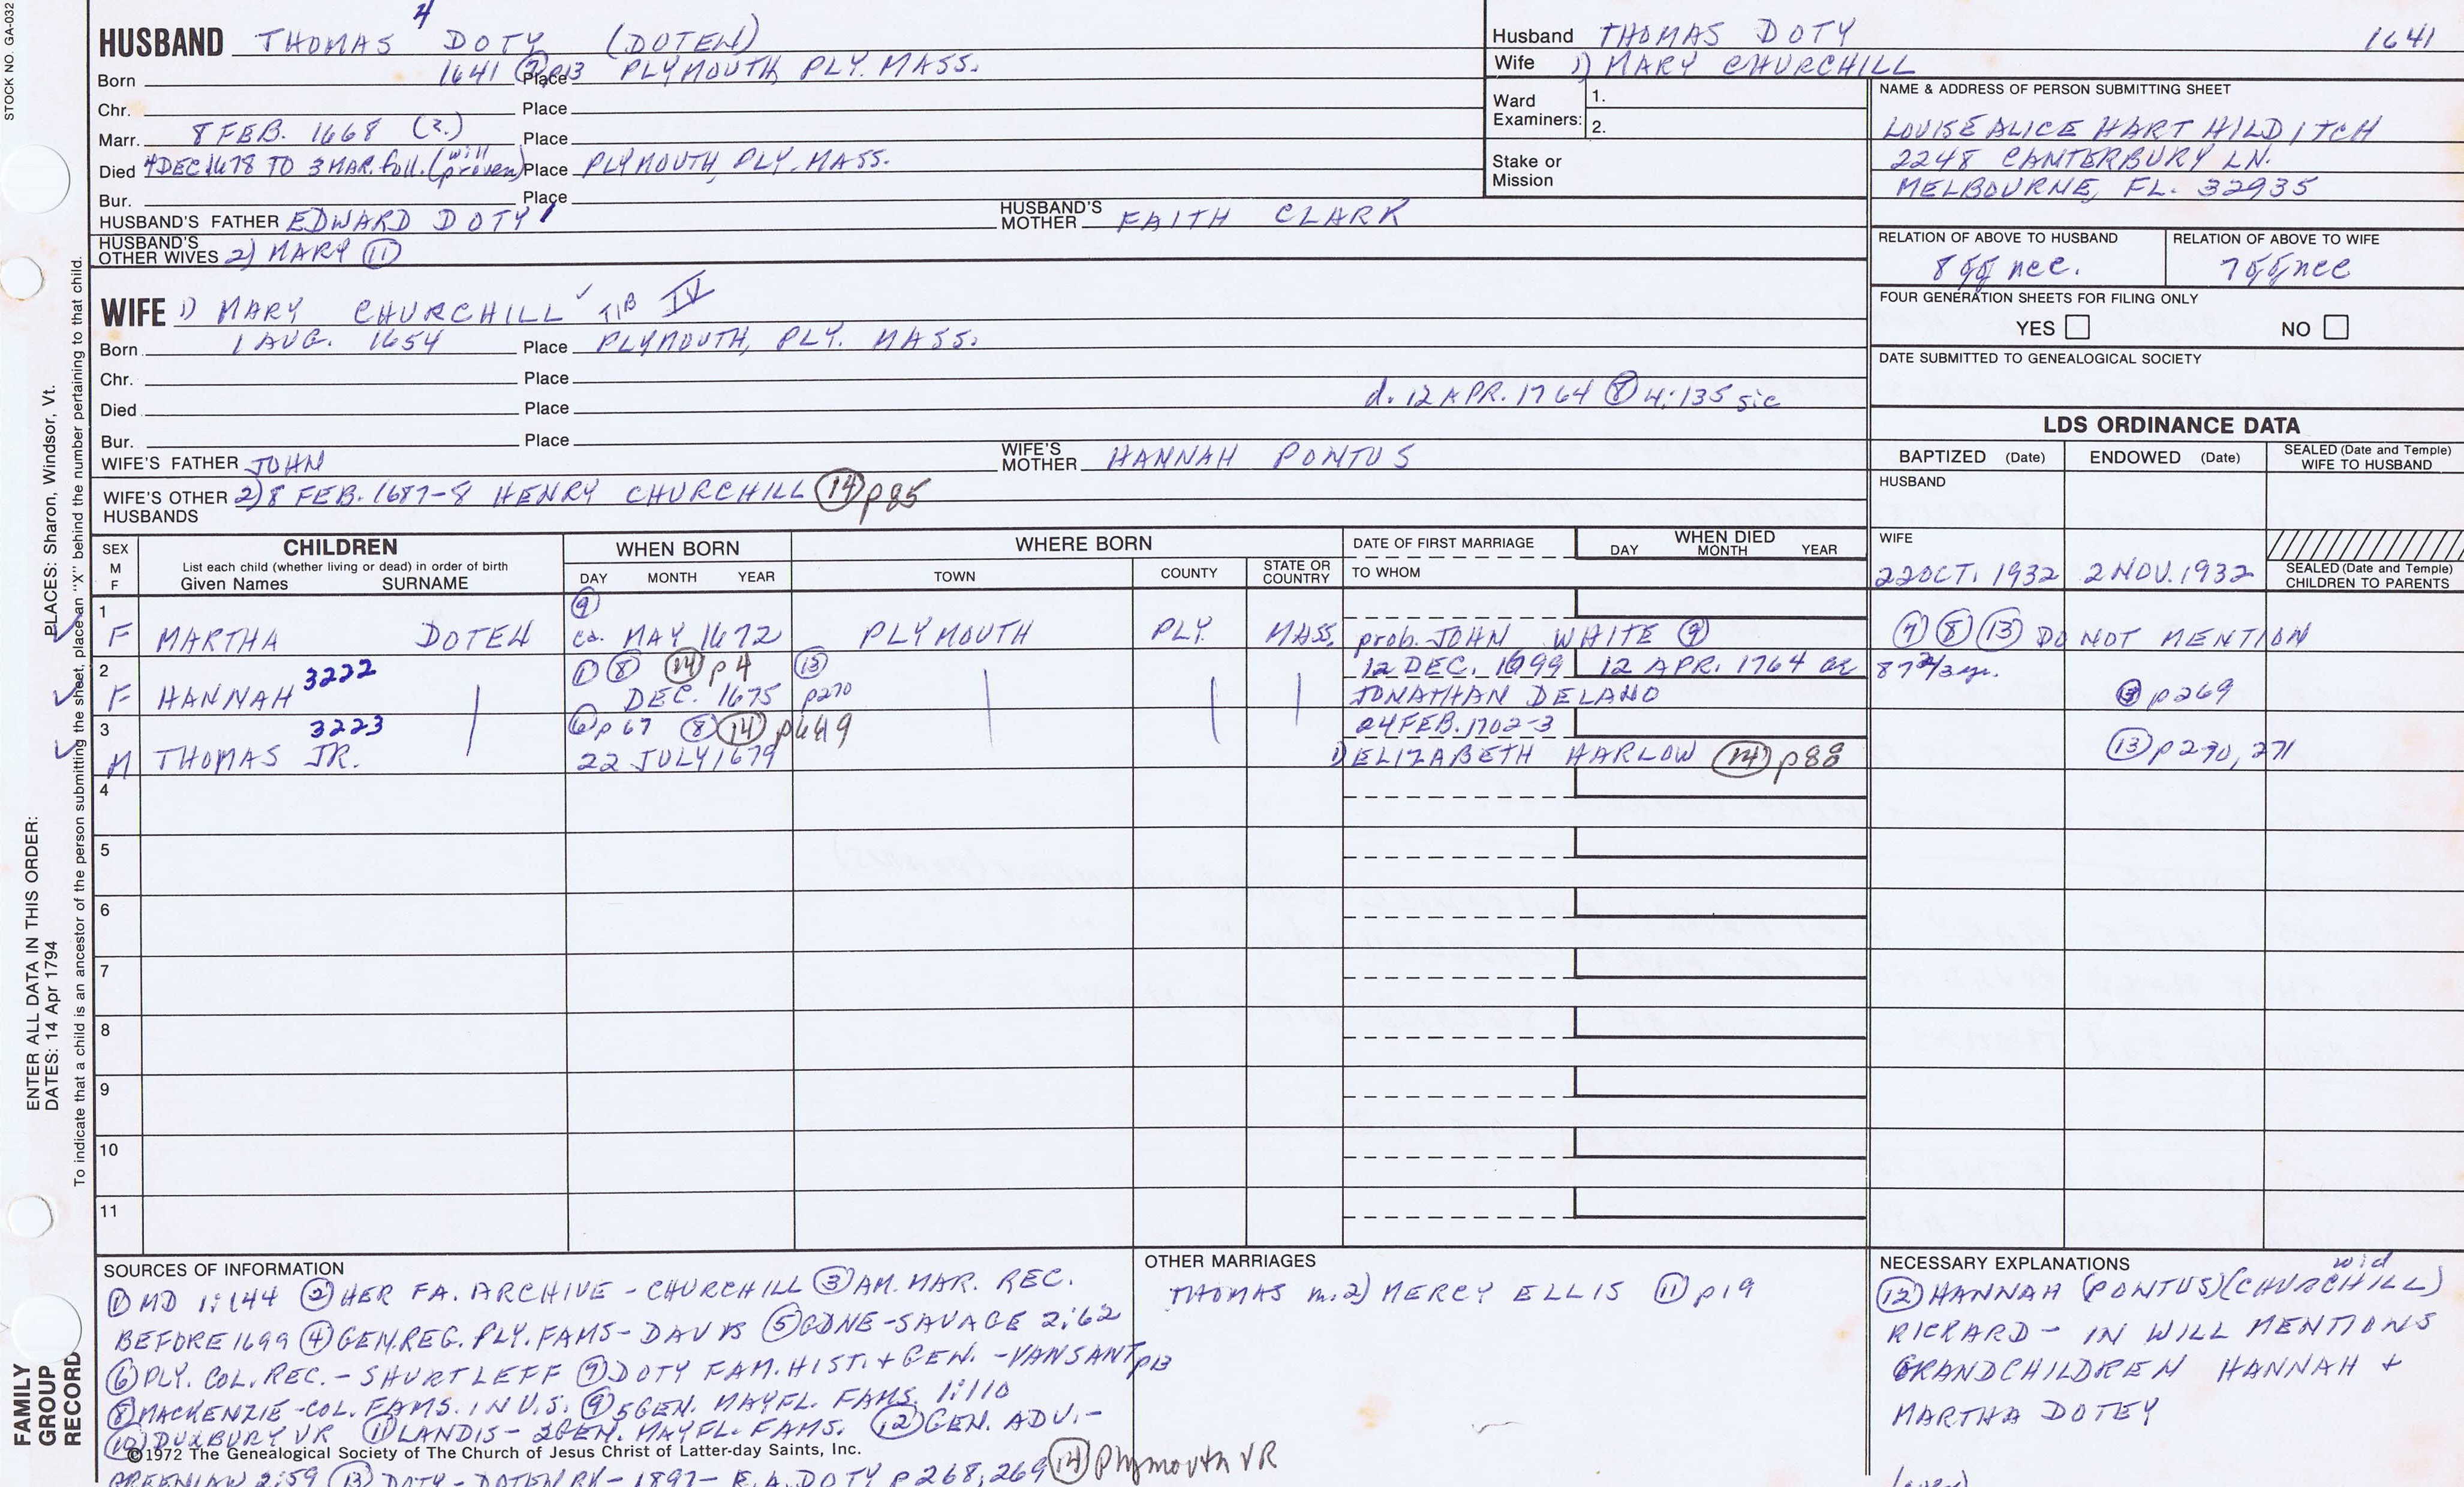 STOCK NO. GA-032
4
HUSBAND THOMAS DOTY (DOTEN)
Born 1641 (7) p13 Place PLYMOUTH, PLY. MASS.
Chr. Place
Marr. 8 FEB. 1668 (2.) Place
Died 4 DEC 1678 TO 3 MAR. foll. (will proven) Place PLYMOUTH, PLY. MASS.
Bur. Place
HUSBAND'S FATHER EDWARD DOTY HUSBAND'S MOTHER FAITH CLARK
HUSBAND'S OTHER WIVES 2) MARY (11)
Husband THOMAS DOTY 1641
Wife 1) MARY CHURCHILL
Ward Examiners: 1.
2.
Stake or Mission
NAME & ADDRESS OF PERSON SUBMITTING SHEET
LOUISE ALICE HART HILDITCH
2248 CANTERBURY LN.
MELBOURNE, FL. 32935
RELATION OF ABOVE TO HUSBAND RELATION OF ABOVE TO WIFE
8 gg nee. 7 gg nee
FOUR GENERATION SHEETS FOR FILING ONLY
YES NO
DATE SUBMITTED TO GENEALOGICAL SOCIETY
WIFE 1) MARY CHURCHILL TIB IV
Born 1 AUG. 1654 Place PLYMOUTH, PLY. MASS.
Chr. Place
Died Place d. 12 APR. 1764 (8) 4:135 sic
Bur. Place
WIFE'S FATHER JOHN WIFE'S MOTHER HANNAH PONTUS
WIFE'S OTHER HUSBANDS 2) 8 FEB. 1687-8 HENRY CHURCHILL (14) p85
LDS ORDINANCE DATA
BAPTIZED (Date) ENDOWED (Date) SEALED (Date and Temple) WIFE TO HUSBAND
HUSBAND
WIFE
22 OCT. 1932 2 NOV. 1932 SEALED (Date and Temple) CHILDREN TO PARENTS
SEX M F CHILDREN List each child (whether living or dead) in order of birth Given Names SURNAME WHEN BORN DAY MONTH YEAR WHERE BORN TOWN COUNTY STATE OR COUNTRY DATE OF FIRST MARRIAGE TO WHOM WHEN DIED DAY MONTH YEAR
1 (9)
F MARTHA DOTEN ca. MAY 1672 PLYMOUTH PLY. MASS. prob. JOHN WHITE (9) (7) (8) (13) DO NOT MENTION
2 3222 (1) (8) (14) p4 (13) 12 DEC. 1699 12 APR. 1764 ae 87 2/3 yr.
F HANNAH DEC. 1675 p270 JONATHAN DELANO p269
3 3223 (6) p67 (8) (14) p449 24 FEB. 1702-3
M THOMAS JR. 22 JULY 1679 1) ELIZABETH HARLOW (14) p88 (13) p270, 271
4
5
6
7
8
9
10
11
SOURCES OF INFORMATION
(1) MD 1:144 (2) HER FA. ARCHIVE - CHURCHILL (3) AM. MAR. REC.
BEFORE 1699 (4) GEN. REG. PLY. FAMS - DAVIS (5) GDNE - SAVAGE 2:62
(6) PLY. COL. REC. - SHURTLEFF (7) DOTY FAM. HIST. + GEN. - VANSANT p13
(8) MACKENZIE - COL. FAMS. IN U.S. (9) 5 GEN. MAYFL. FAMS. 1:110
(10) DUXBURY VR (11) LANDIS - 2 GEN. MAYFL. FAMS. (12) GEN. ADV. -
©1972 The Genealogical Society of The Church of Jesus Christ of Latter-day Saints, Inc.
GREENLAW 2:59 (13) DOTY - DOTEN BK - 1897 - E.A. DOTY p 268, 269 (14) Plymouth VR
OTHER MARRIAGES
THOMAS m. 2) MERCY ELLIS (11) p19
NECESSARY EXPLANATIONS
wid
(12) HANNAH (PONTUS) (CHURCHILL)
RICKARD - IN WILL MENTIONS
GRANDCHILDREN HANNAH +
MARTHA DOTEY
(over)
PLACES: Sharon, Windsor, Vt.
ENTER ALL DATA IN THIS ORDER:
DATES: 14 Apr 1794
To indicate that a child is an ancestor of the person submitting the sheet, place an "X" behind the number pertaining to that child.
FAMILY
GROUP
RECORD